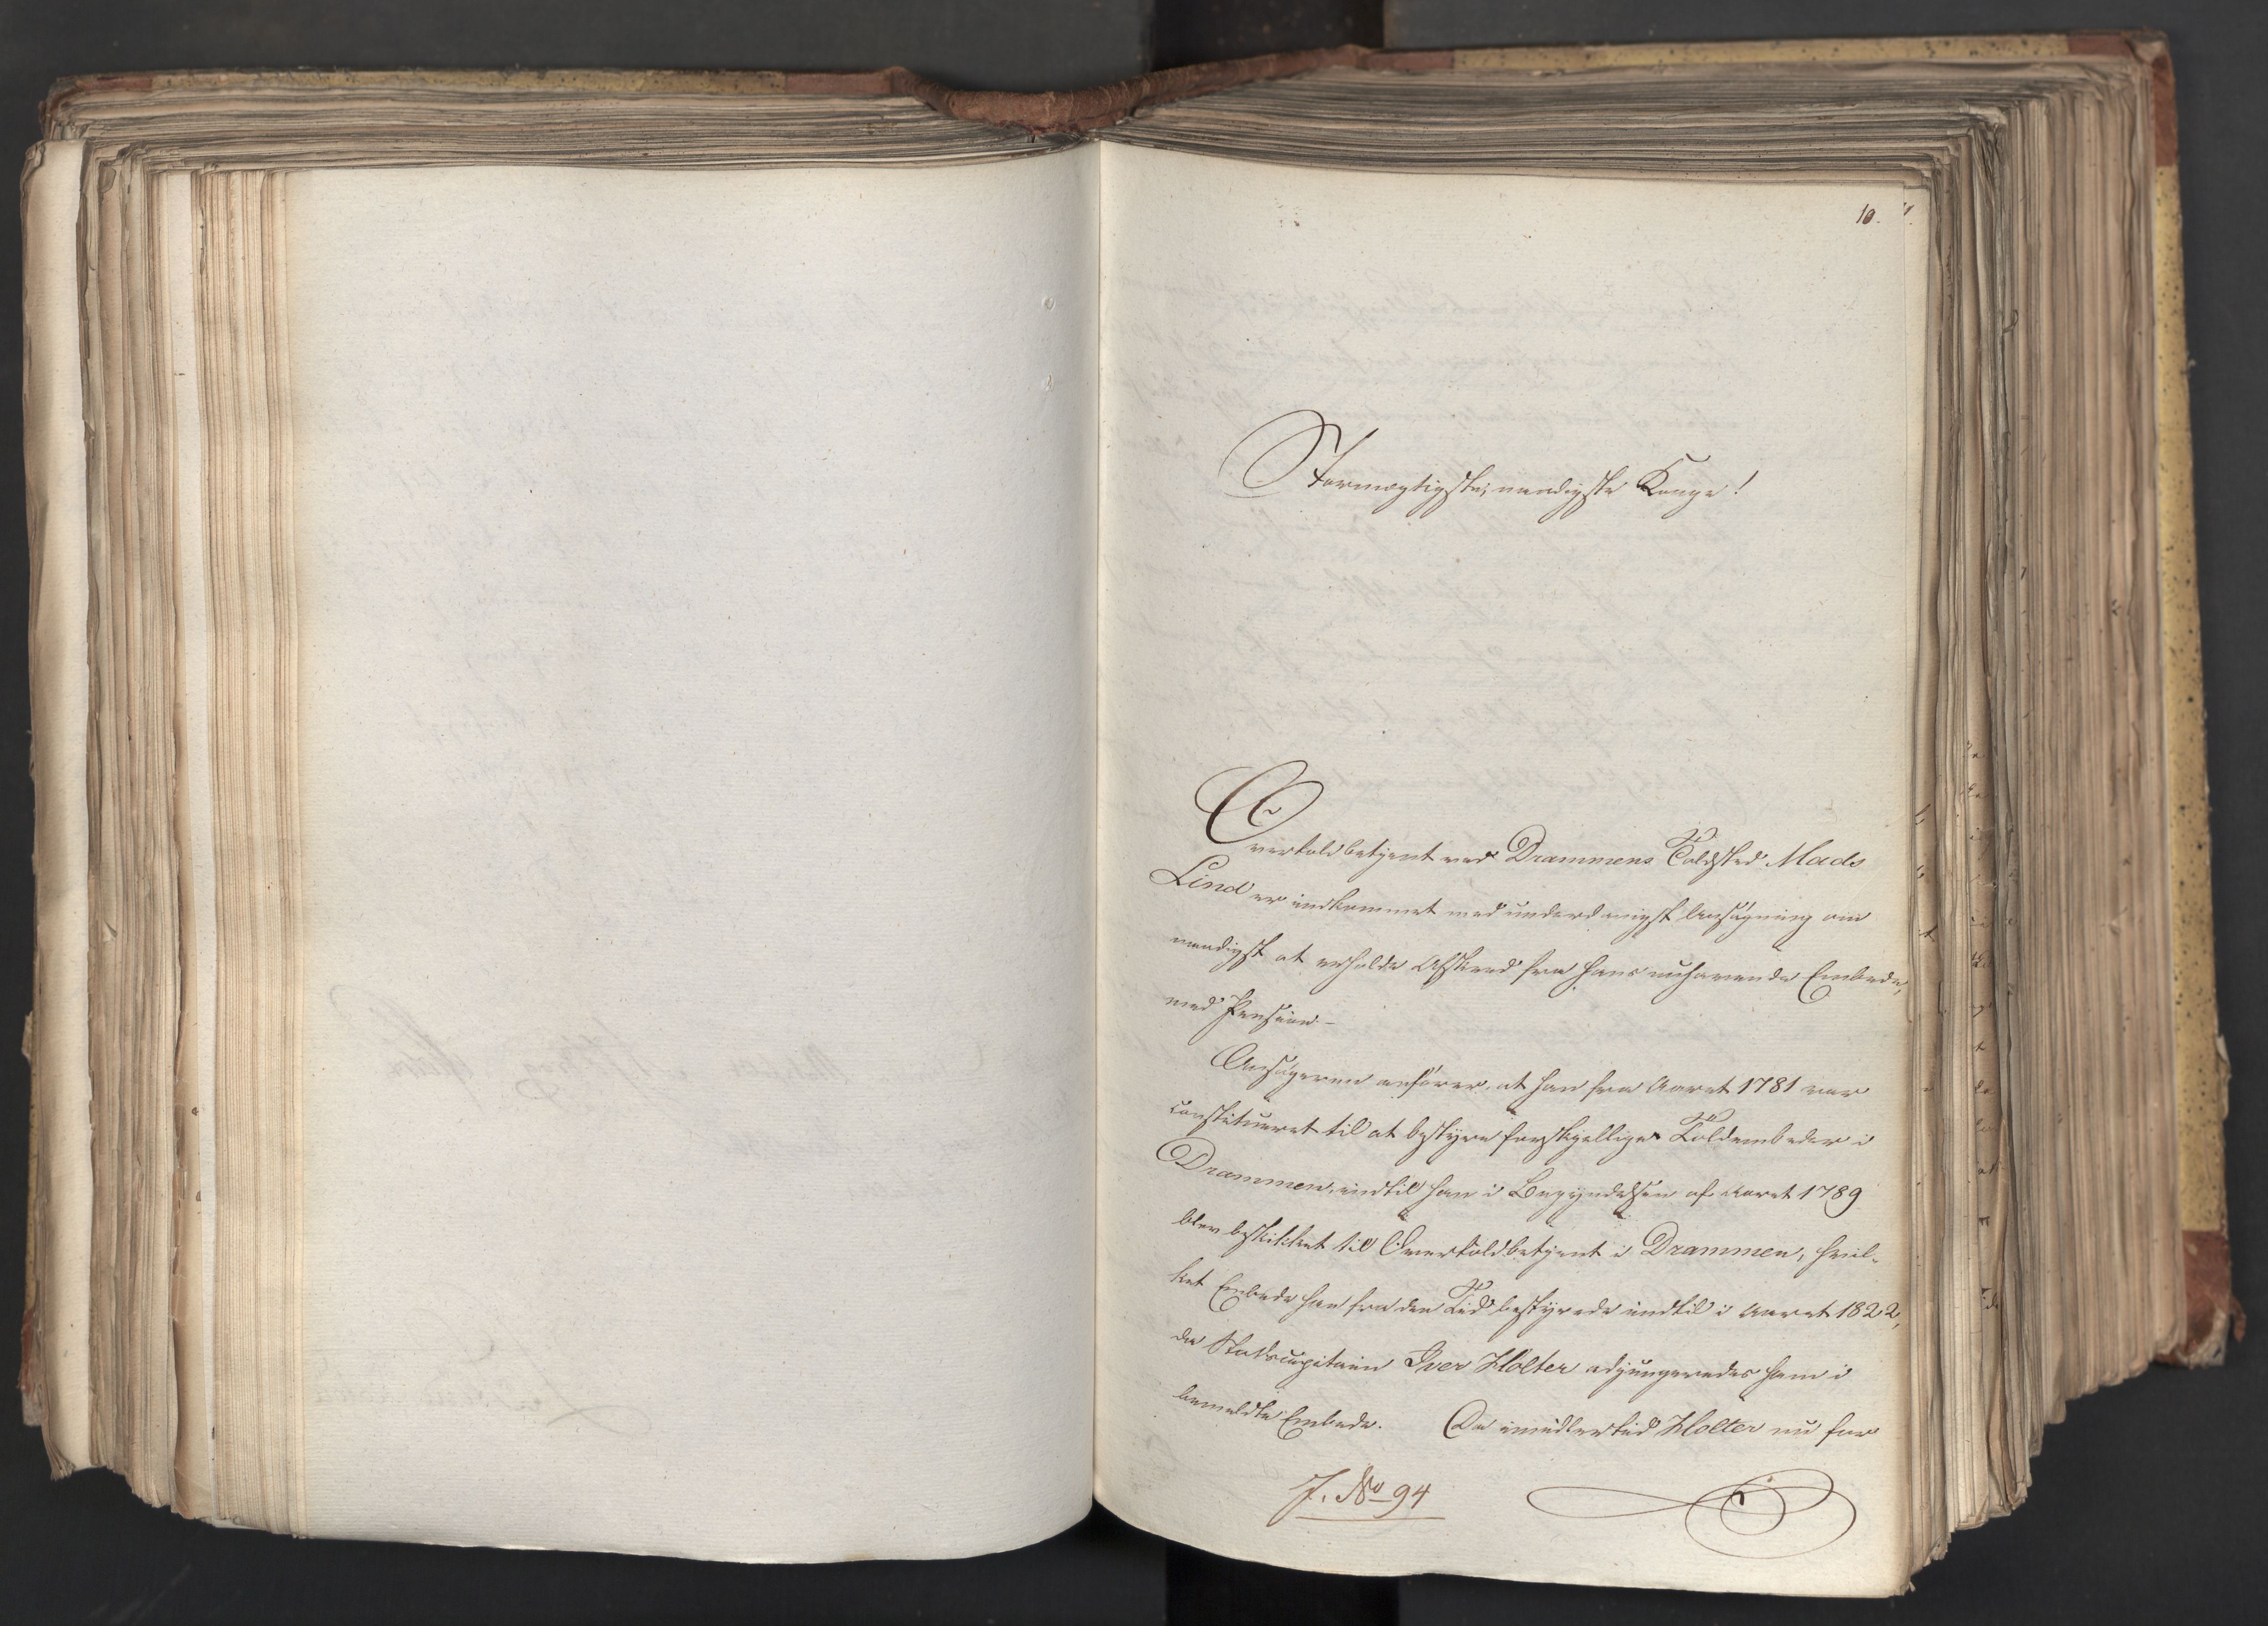 10.
Stormægtigste, naadigste Konge!
Overtoldbetjent ved Drammens Toldsted Mads
Lind er indkommet med underdanigst Ansøgning om
naadigst at erholde Afskeed fra hans nuhavende Embede,
med Pension.-
Ansøgeren anfører, at han fra Aaret 1781 var
constitueret til at bestyre forskjellige Toldembeder i
Drammen, indtil han i Begyndelsen af Aaret 1789
blev beskikket til Overtoldbetjent i Drammen, hvil-
ket Embede han fra den Tid bestyrede indtil i Aaret 1822,
da Stabscapitain Iver Holter adjungeredes ham i
bemeldte Embede. Da imidlertid Holter nu har
J. No 94